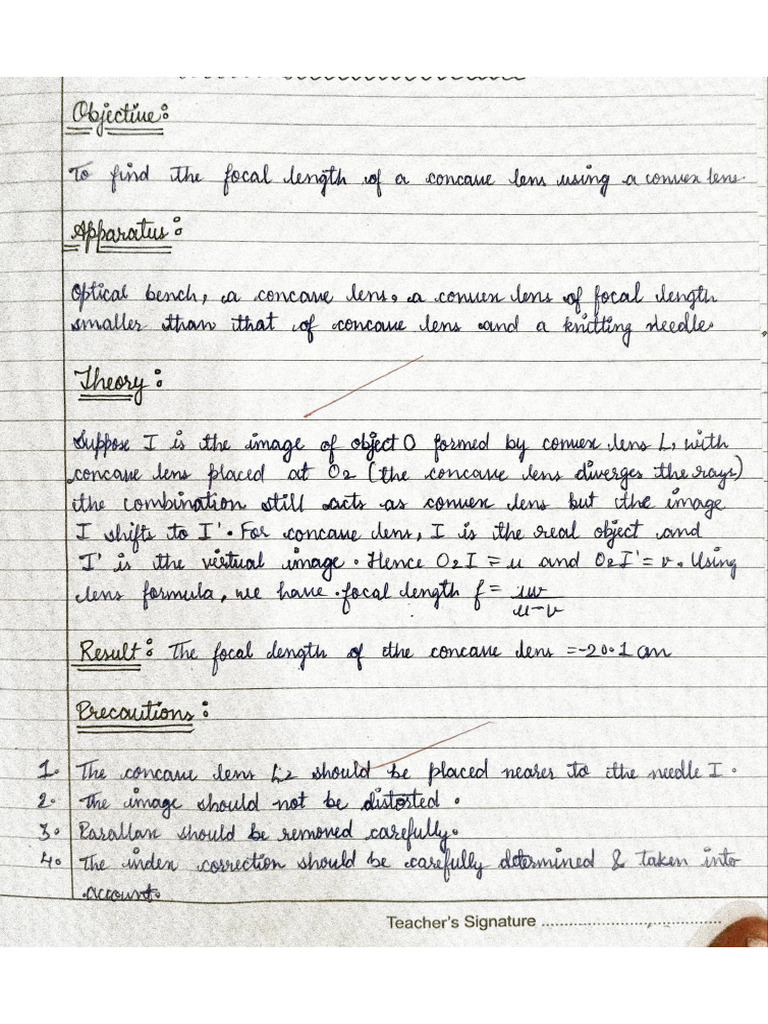 Objective:
To find the focal length of a concave lens using a convex lens.
Apparatus:
Optical bench, a concave lens, a convex lens of focal length
smaller than that of concave lens and a knitting needle.
Theory:
Suppose I is the image of object O formed by convex lens L, with
concave lens placed at O2 (the concave lens diverges the rays)
the combination still acts as convex lens but the image
I shifts to I'. For concave lens, I is the real object and
I' is the virtual image. Hence O2I = u and O2I' = v. Using
lens formula, we have focal length f = uv/u-v
Result: The focal length of the concave lens = -20.1 cm
Precautions:
1. The concave lens L2 should be placed nearer to the needle I.
2. The image should not be distorted.
3. Parallax should be removed carefully.
4. The index correction should be carefully determined & taken into
account.
Teacher's Signature